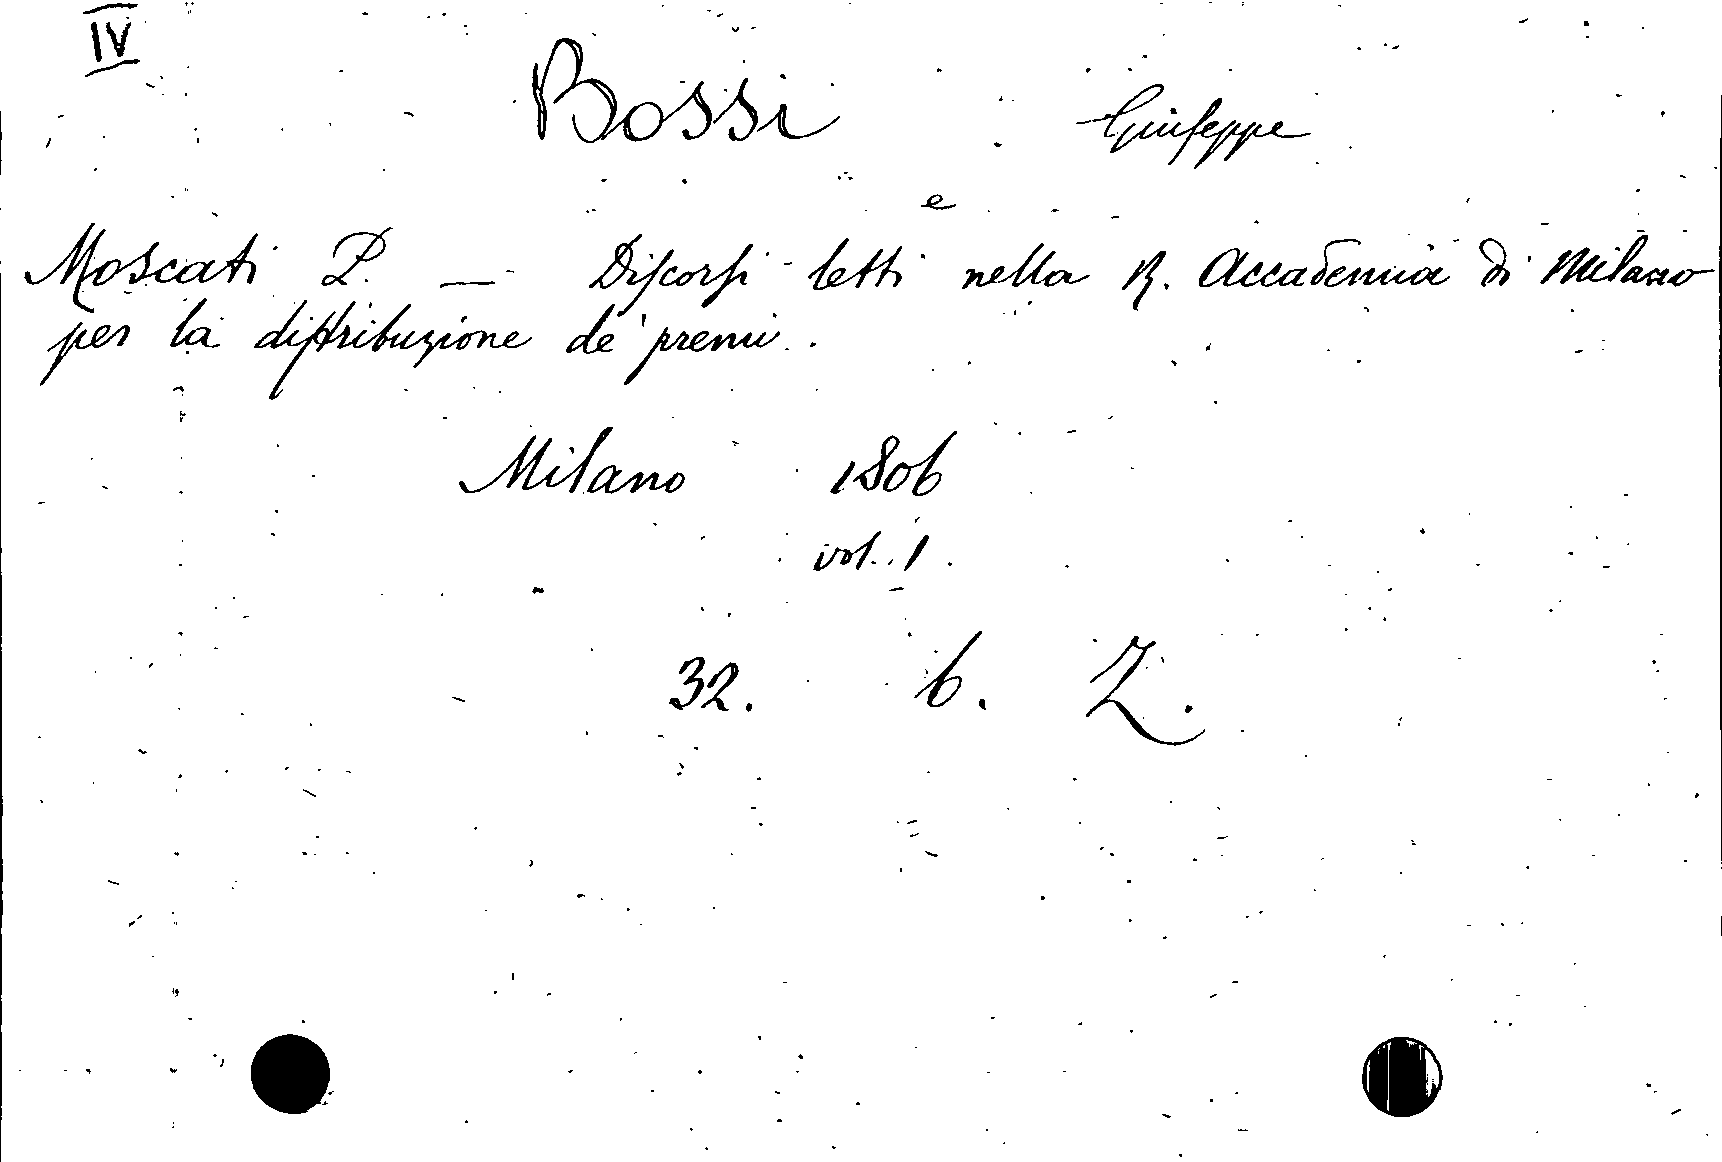 IV
Bossi Giuseppe
e
Moscati P. — Discorsi letti nella R. Accademia di Milano
per la distribuzione de' premi.
Milano 1806
vol. 1.
32. 6. Z.